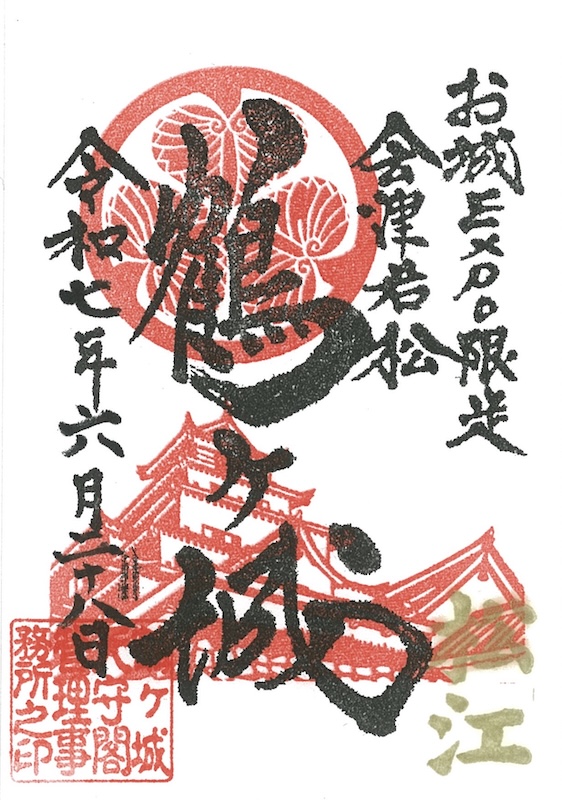 お城EXPO限定
会津若松
鶴ヶ城
令和七年六月二十八日
松江
鶴ヶ城
天守閣
管理事
務所之印